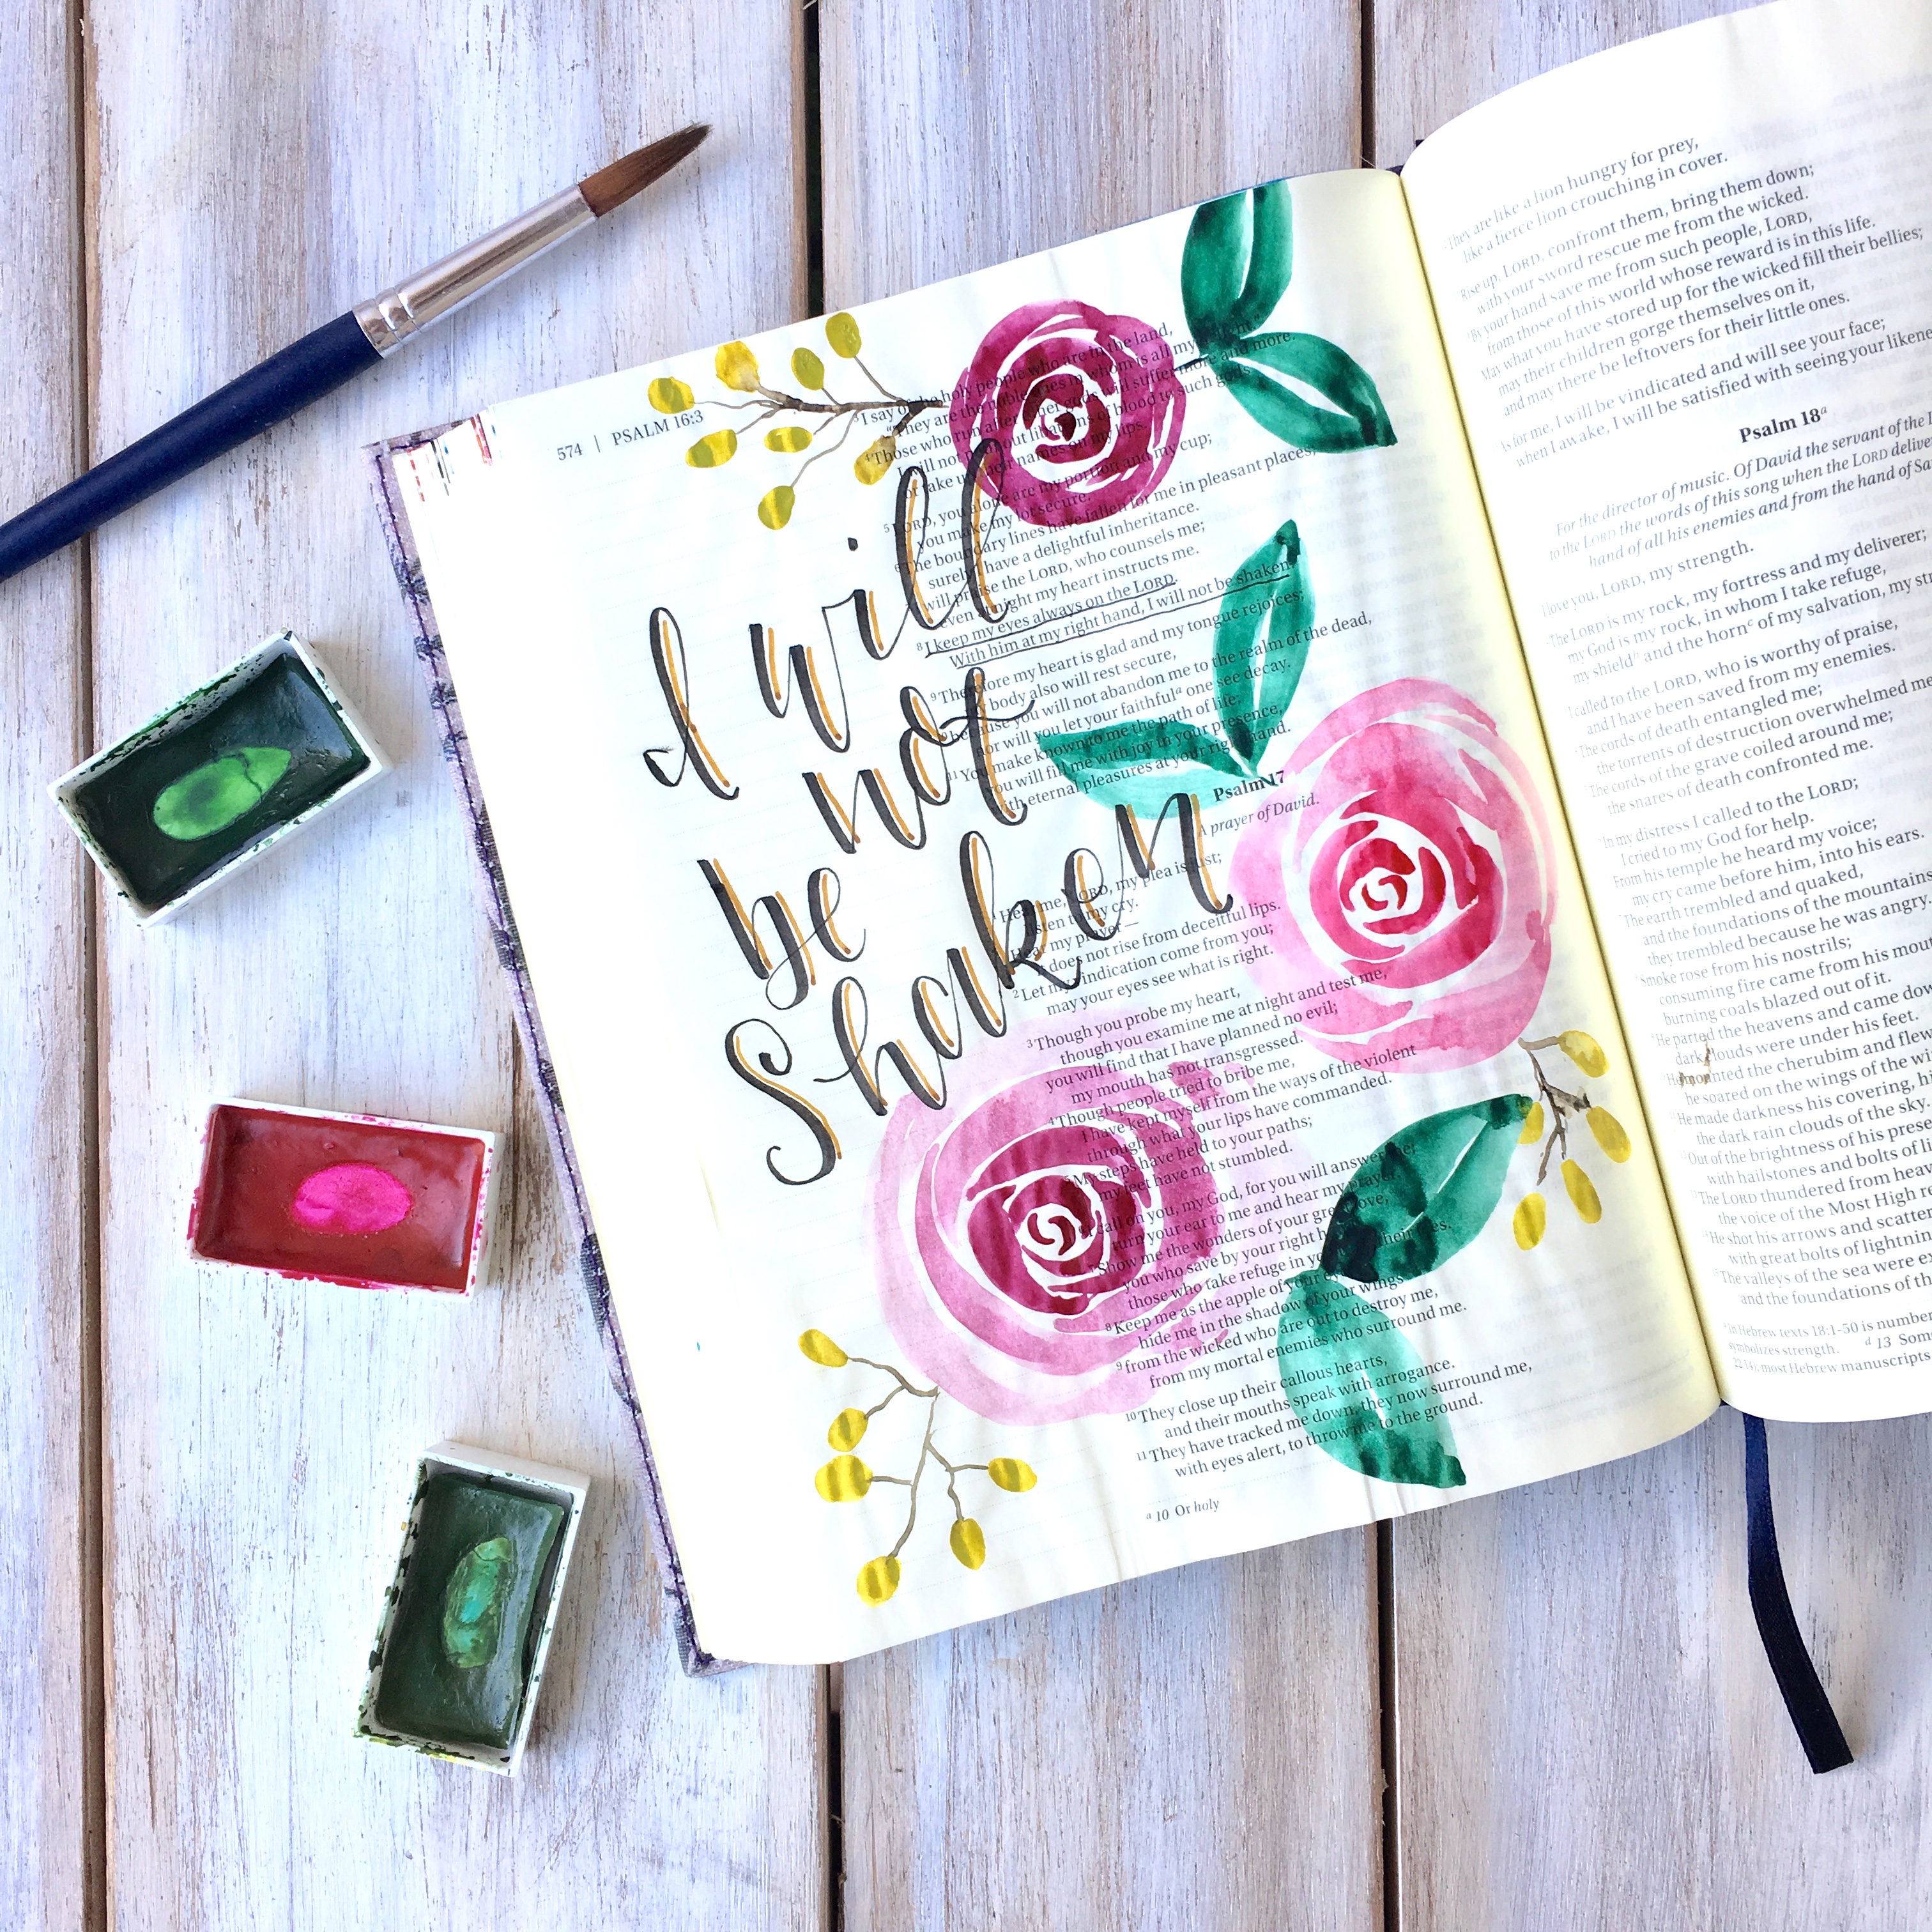 574 | PSALM 16:3
I will
not
be
Shaken
I say of the holy people who are in the land,
"They are the noble ones in whom is all my
Those who run after other gods will suffer more and more.
I will not pour out libations of blood to such gods
or take up their names on my lips.
5 LORD, you alone are my portion and my cup;
you make my lot secure.
The boundary lines have fallen for me in pleasant places;
surely I have a delightful inheritance.
will praise the LORD, who counsels me;
even at night my heart instructs me.
8 I keep my eyes always on the LORD.
With him at my right hand, I will not be shaken.
9 Therefore my heart is glad and my tongue rejoices;
my body also will rest secure,
because you will not abandon me to the realm of the dead,
nor will you let your faithful a one see decay.
11 You make known to me the path of life;
you will fill me with joy in your presence,
with eternal pleasures at your right hand.
Psalm 17
A prayer of David.
1 Hear me, LORD, my plea is just;
listen to my cry.
Hear my prayer—
does not rise from deceitful lips.
2 Let my vindication come from you;
may your eyes see what is right.
3 Though you probe my heart,
though you examine me at night and test me,
you will find that I have planned no evil;
my mouth has not transgressed.
4 Though people tried to bribe me,
I have kept myself from the ways of the violent
through what your lips have commanded.
My steps have held to your paths;
my feet have not stumbled.
call on you, my God, for you will answer me;
turn your ear to me and hear my prayer.
7 Show me the wonders of your great love,
you who save by your right hand
those who take refuge in you from their
8 Keep me as the apple of your eye;
hide me in the shadow of your wings
9 from the wicked who are out to destroy me,
from my mortal enemies who surround me.
10 They close up their callous hearts,
and their mouths speak with arrogance.
11 They have tracked me down, they now surround me,
with eyes alert, to throw me to the ground.
a 10 Or holy
They are like a lion hungry for prey,
like a fierce lion crouching in cover.
Rise up, LORD, confront them, bring them down;
with your sword rescue me from the wicked.
By your hand save me from such people, LORD,
from those of this world whose reward is in this life.
May what you have stored up for the wicked fill their bellies;
may their children gorge themselves on it,
and may there be leftovers for their little ones.
As for me, I will be vindicated and will see your face;
when I awake, I will be satisfied with seeing your
Psalm 18 a
For the director of music. Of David the servant of the
to the LORD the words of this song when the LORD
hand of all his enemies and from the hand of
I love you, LORD, my strength.
The LORD is my rock, my fortress and my deliverer;
my God is my rock, in whom I take refuge,
my shield b and the horn c of my salvation, my
I called to the LORD, who is worthy of praise,
and I have been saved from my enemies.
The cords of death entangled me;
the torrents of destruction overwhelmed
The cords of the grave coiled around me;
the snares of death confronted me.
In my distress I called to the LORD;
I cried to my God for help.
From his temple he heard my voice;
my cry came before him, into his ears.
The earth trembled and quaked,
and the foundations of the mountains
they trembled because he was angry.
Smoke rose from his nostrils;
consuming fire came from his
burning coals blazed out of it.
He parted the heavens and came
dark clouds were under his feet.
He mounted the cherubim and
he soared on the wings of the
He made darkness his covering,
the dark rain clouds of the sky.
Out of the brightness of his
with hailstones and bolts of
The LORD thundered from
the voice of the Most High
He shot his arrows and
with great bolts of
The valleys of the sea were
and the foundations of
In Hebrew texts 18:1-50 is
symbolizes strength. d 13
most Hebrew manuscripts